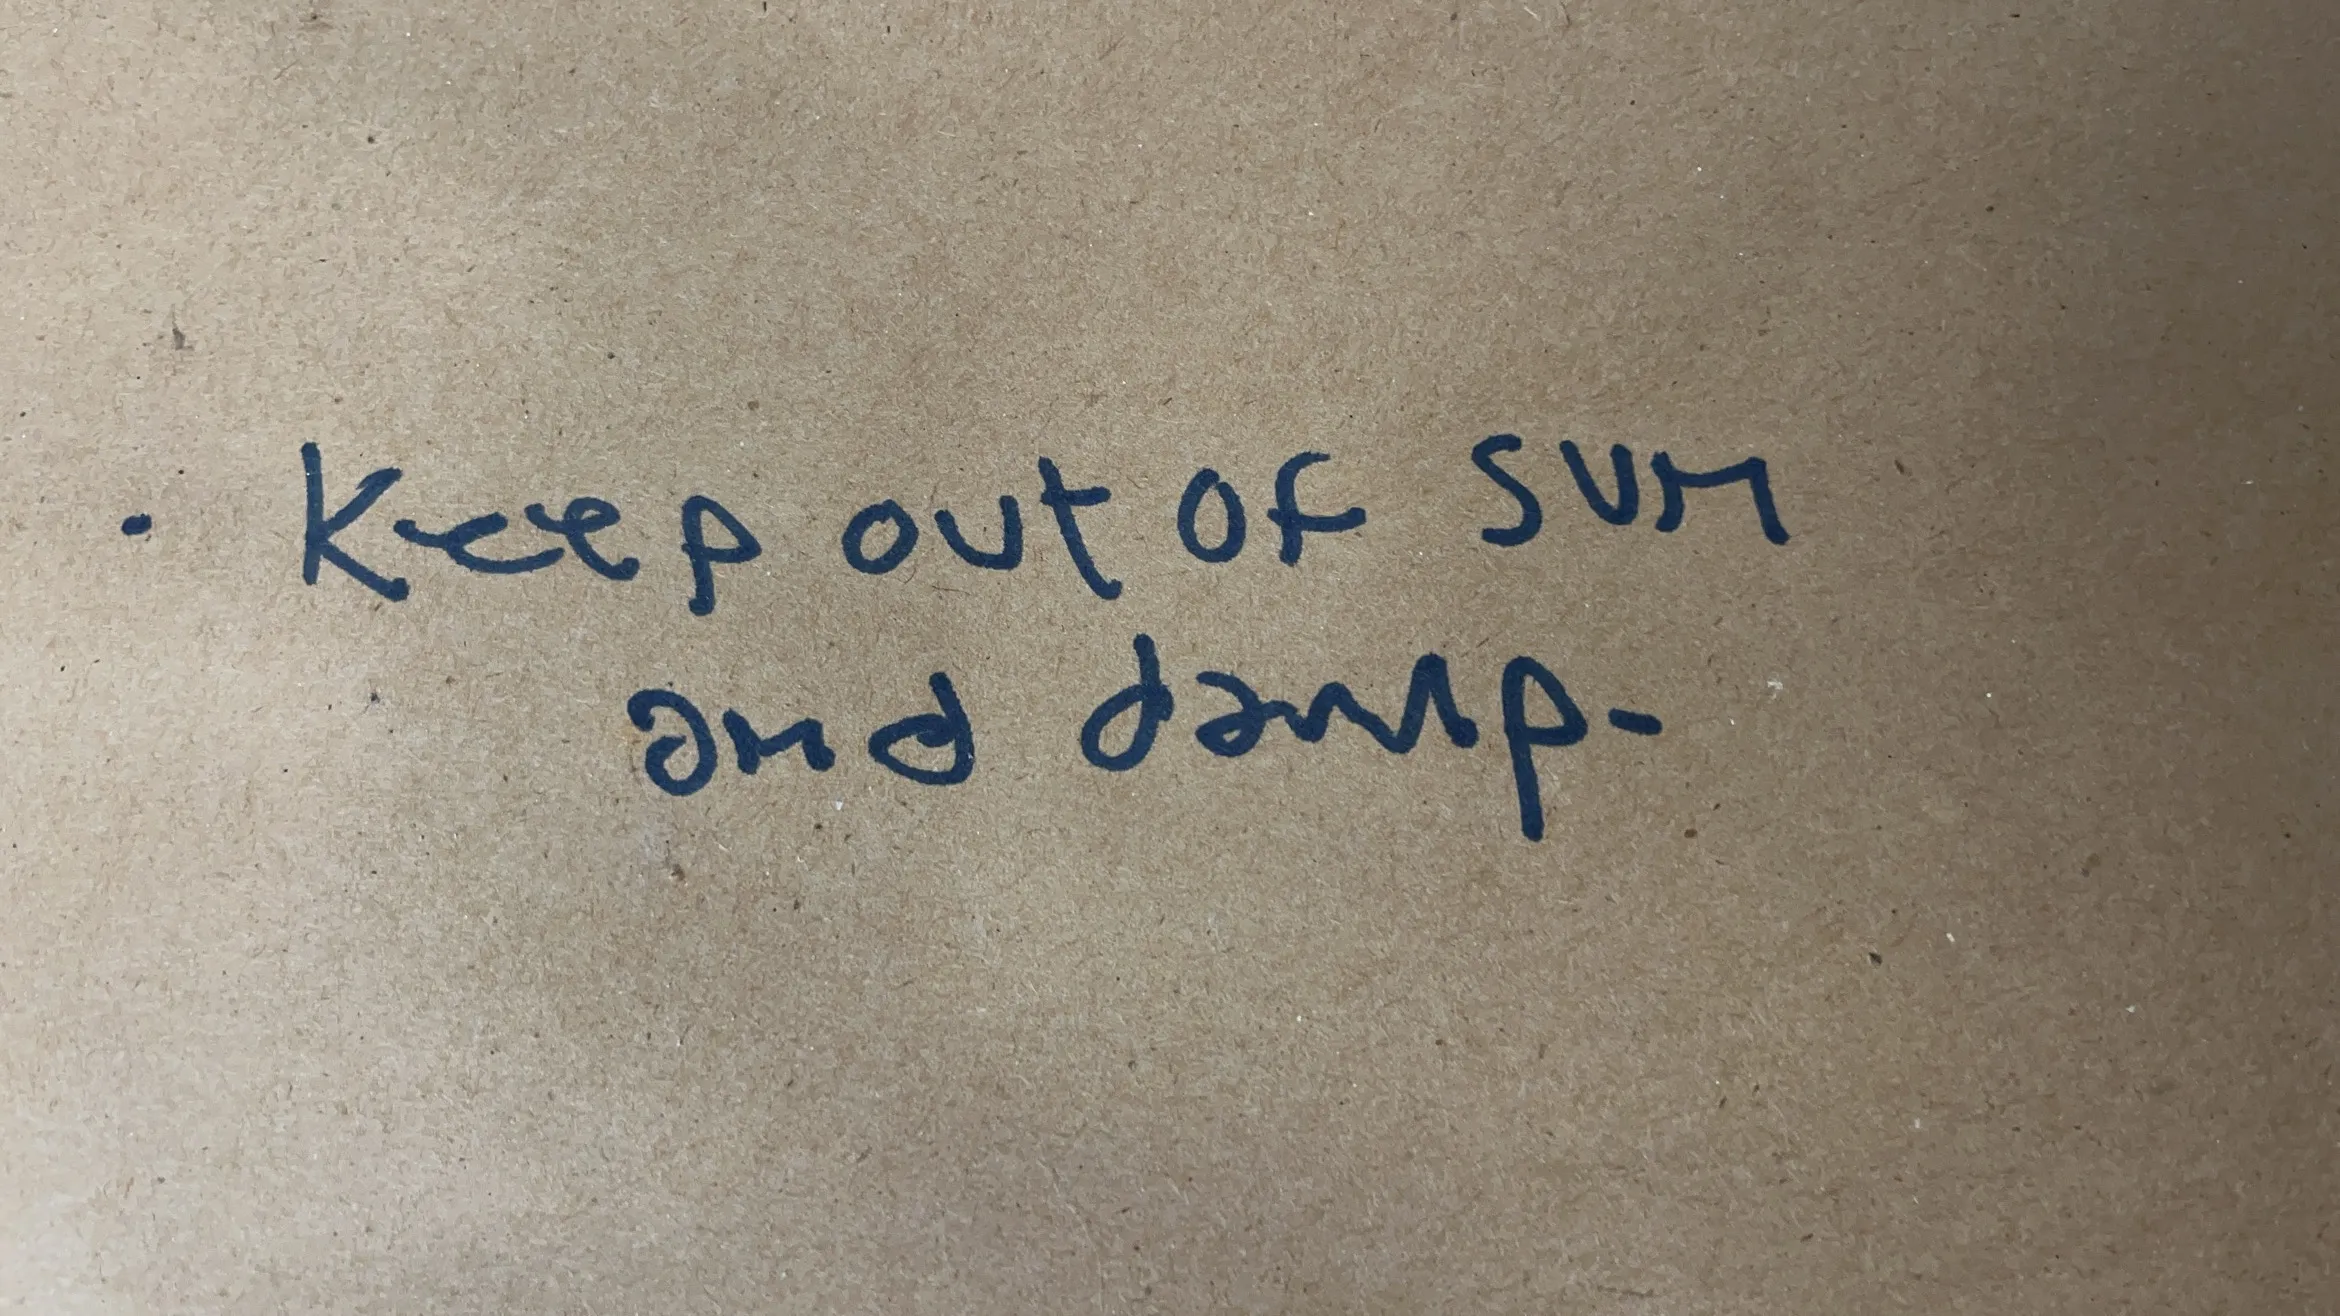 · Keep out of sun
and damp-